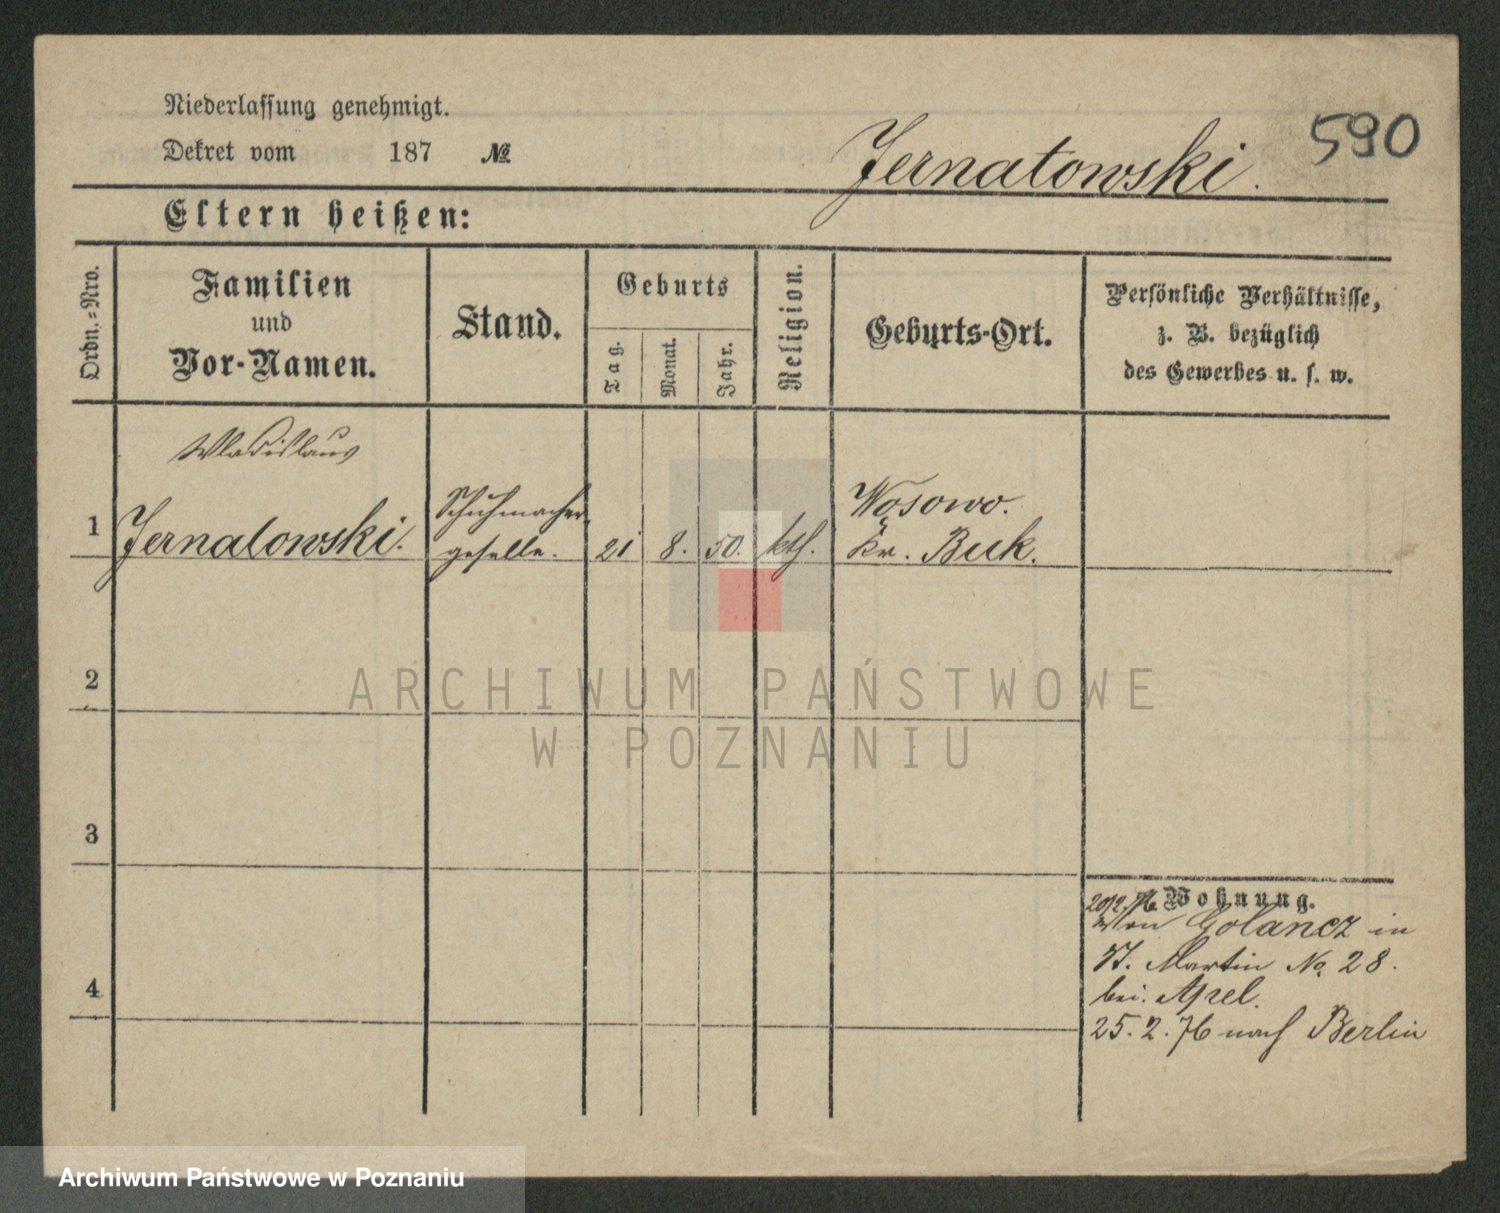 Niederlassung genehmigt.
Dekret vom 187 №
Jernatowski.
590
Eltern heißen:
Ordn.=Nro.
Familien
und
Vor-Namen.
Stand.
Geburts
Tag.
Monat.
Jahr.
Religion.
Geburts-Ort.
Persönliche Verhältnisse,
z. B. bezüglich
des Gewerbes u. s. w.
Wladislaus
1 Jernatowski. Schuhmacher-
geselle. 21 8. 50. kth. Wosowo.
Kr. Buk.
2
3
4
Wohnung.
von Golancz in
St. Martin No. 28.
bei Apel.
25. 2. 76 nach Berlin
ARCHIWUM PAŃSTWOWE
W POZNANIU
Archiwum Państwowe w Poznaniu